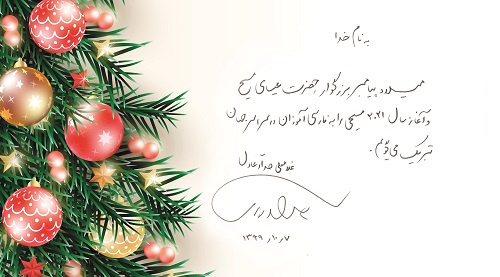 به نام خدا
میلاد پیامبر بزرگوار حضرت عیسای مسیح
و آغاز سال ۲۰۲۱ مسیحی را به فارسی آموزان در سراسر جهان
تبریک می‌گویم.
غلامعلی حدّاد عادل
۷ر۱۰ر۱۳۹۹